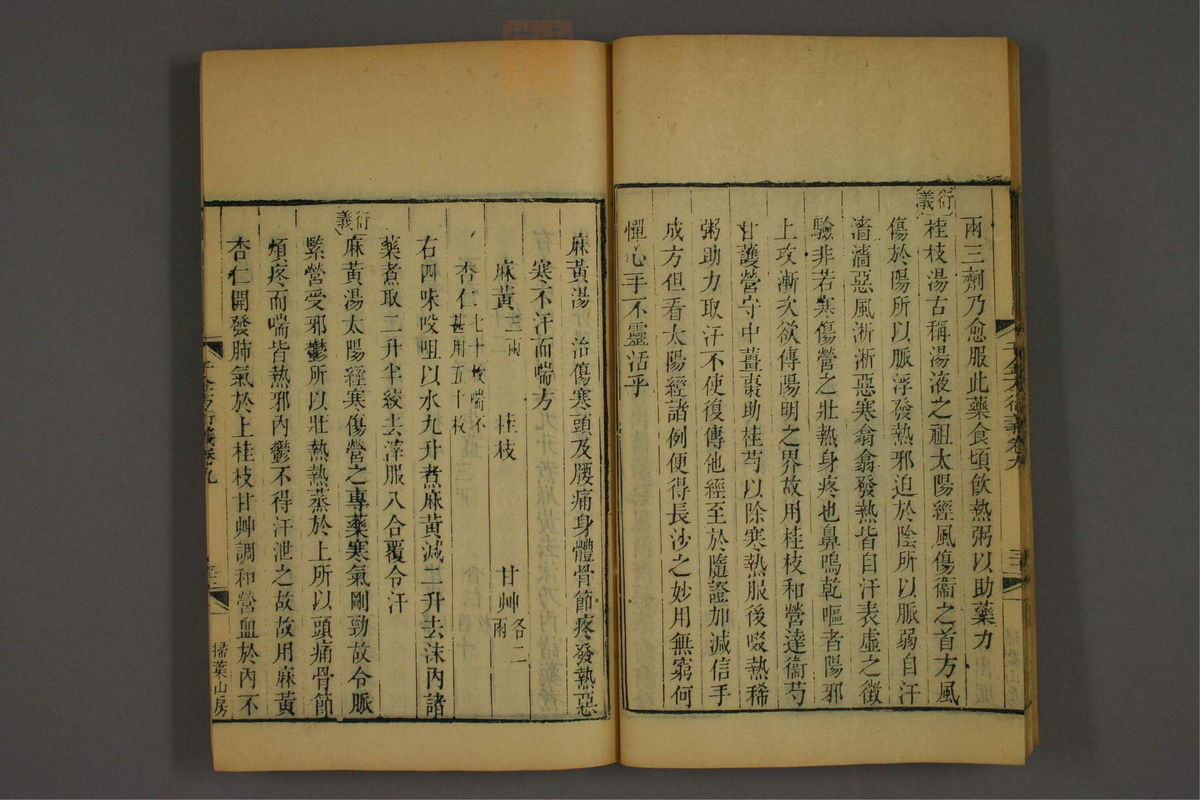 兩三劑乃愈服此藥食頃飲熱粥以助藥力
衍義
桂枝湯古稱湯液之祖太陽經風傷衞之首方風
傷於陽所以脈浮發熱邪迫於陰所以脈弱自汗
濇濇惡風淅淅惡寒翕翕發熱皆自汗表虛之徵
驗非若寒傷營之壯熱身疼也鼻鳴乾嘔者陽邪
上攻漸次欲傳陽明之界故用桂枝和營達衞芍
甘護營守中薑棗助桂芍以除寒熱服後啜熱稀
粥助力取汗不使復傳他經至於隨證加減信手
成方但看太陽經諸例便得長沙之妙用無窮何
憚心手不靈活乎
麻黃湯 治傷寒頭及腰痛身體骨節疼發熱惡
寒不汗而喘方
麻黃三兩 桂枝 甘艸各二兩
杏仁七十枚喘不甚用五十枚
右四味㕮咀以水九升煮麻黃減二升去沫內諸
藥煮取二升半絞去滓服八合覆令汗
衍義
麻黃湯太陽經寒傷營之專藥寒氣剛勁故令脈
緊營受邪鬱所以壯熱熱蒸於上所以頭痛骨節
煩疼而喘皆熱邪內鬱不得汗泄之故故用麻黃
杏仁開發肺氣於上桂枝甘艸調和營血於內不
千金方衍義卷九
掃葉山房